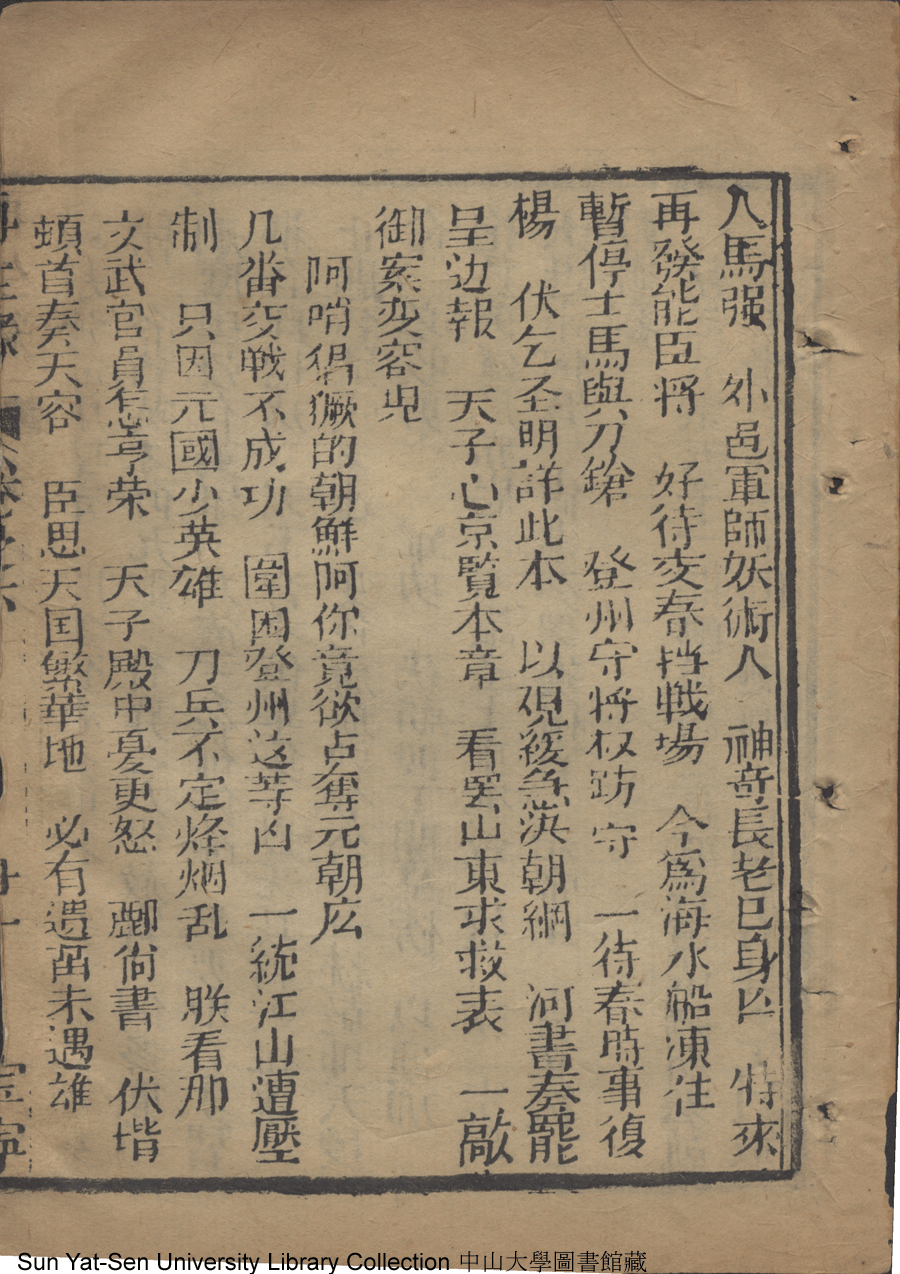 人馬强 外邑軍師妖術人 神奇長老已身亡 特來
再發能臣將 好待交春挡戰場 今爲海水船凍住
暫停士馬與刀鎗 登州守將权防守 一待春時事復
楊 伏乞圣明詳此本 以視緩急決朝綱 河書奏罷
呈边報 天子心京覧本章 看罢山東求救表 一敲
御案变容皃
阿哨猖獗的朝鮮阿你竟欲占奪元朝庅
几畨交戰不成功 圍困登州这等凶 一統江山遭壓
制 只因元國少英雄 刀兵不定烽烟乱 朕看那
文武官員怎享荣 天子殿中憂更怒 酈尙書 伏堦
頓首奏天容 臣思天国繁華地 必有遗畄未遇雄
卷之六
Sun Yat-Sen University Library Collection 中山大學圖書館藏